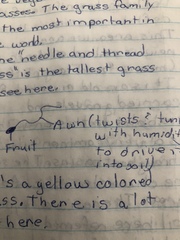 asses. The grass family
the most important in
e world.
he "needle and thread
ss" is the tallest grass
see here.
Awn (twists &
with humidit
to drive
into soil)
Fruit
's a yellow colored
ss. There is a lot
here.